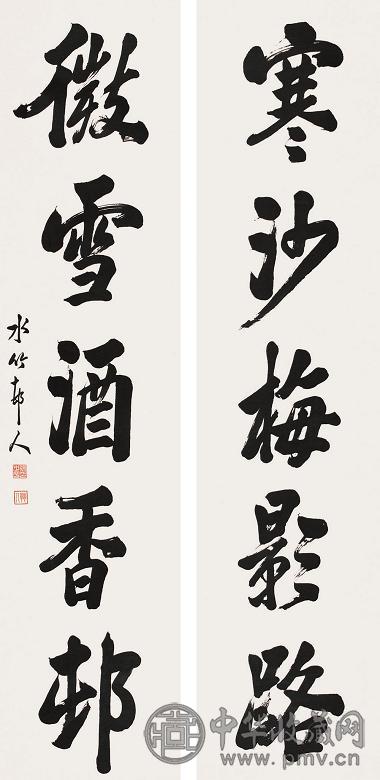 寒沙梅影路
微雪酒香邨
水竹邨人
中华收藏网
www.pmv.cn